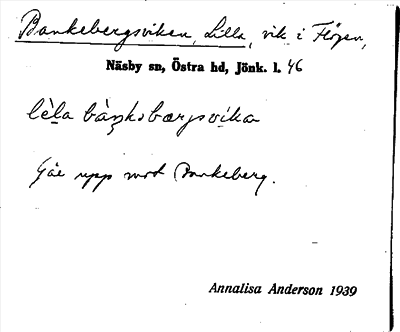 Bankebergsviken, Lilla, vik i Flögen,
Näsby sn, Östra hd, Jönk. l. 46
lèla bàŋkəbærjsvika
Går upp mot Bankeberg.
Annalisa Anderson 1939